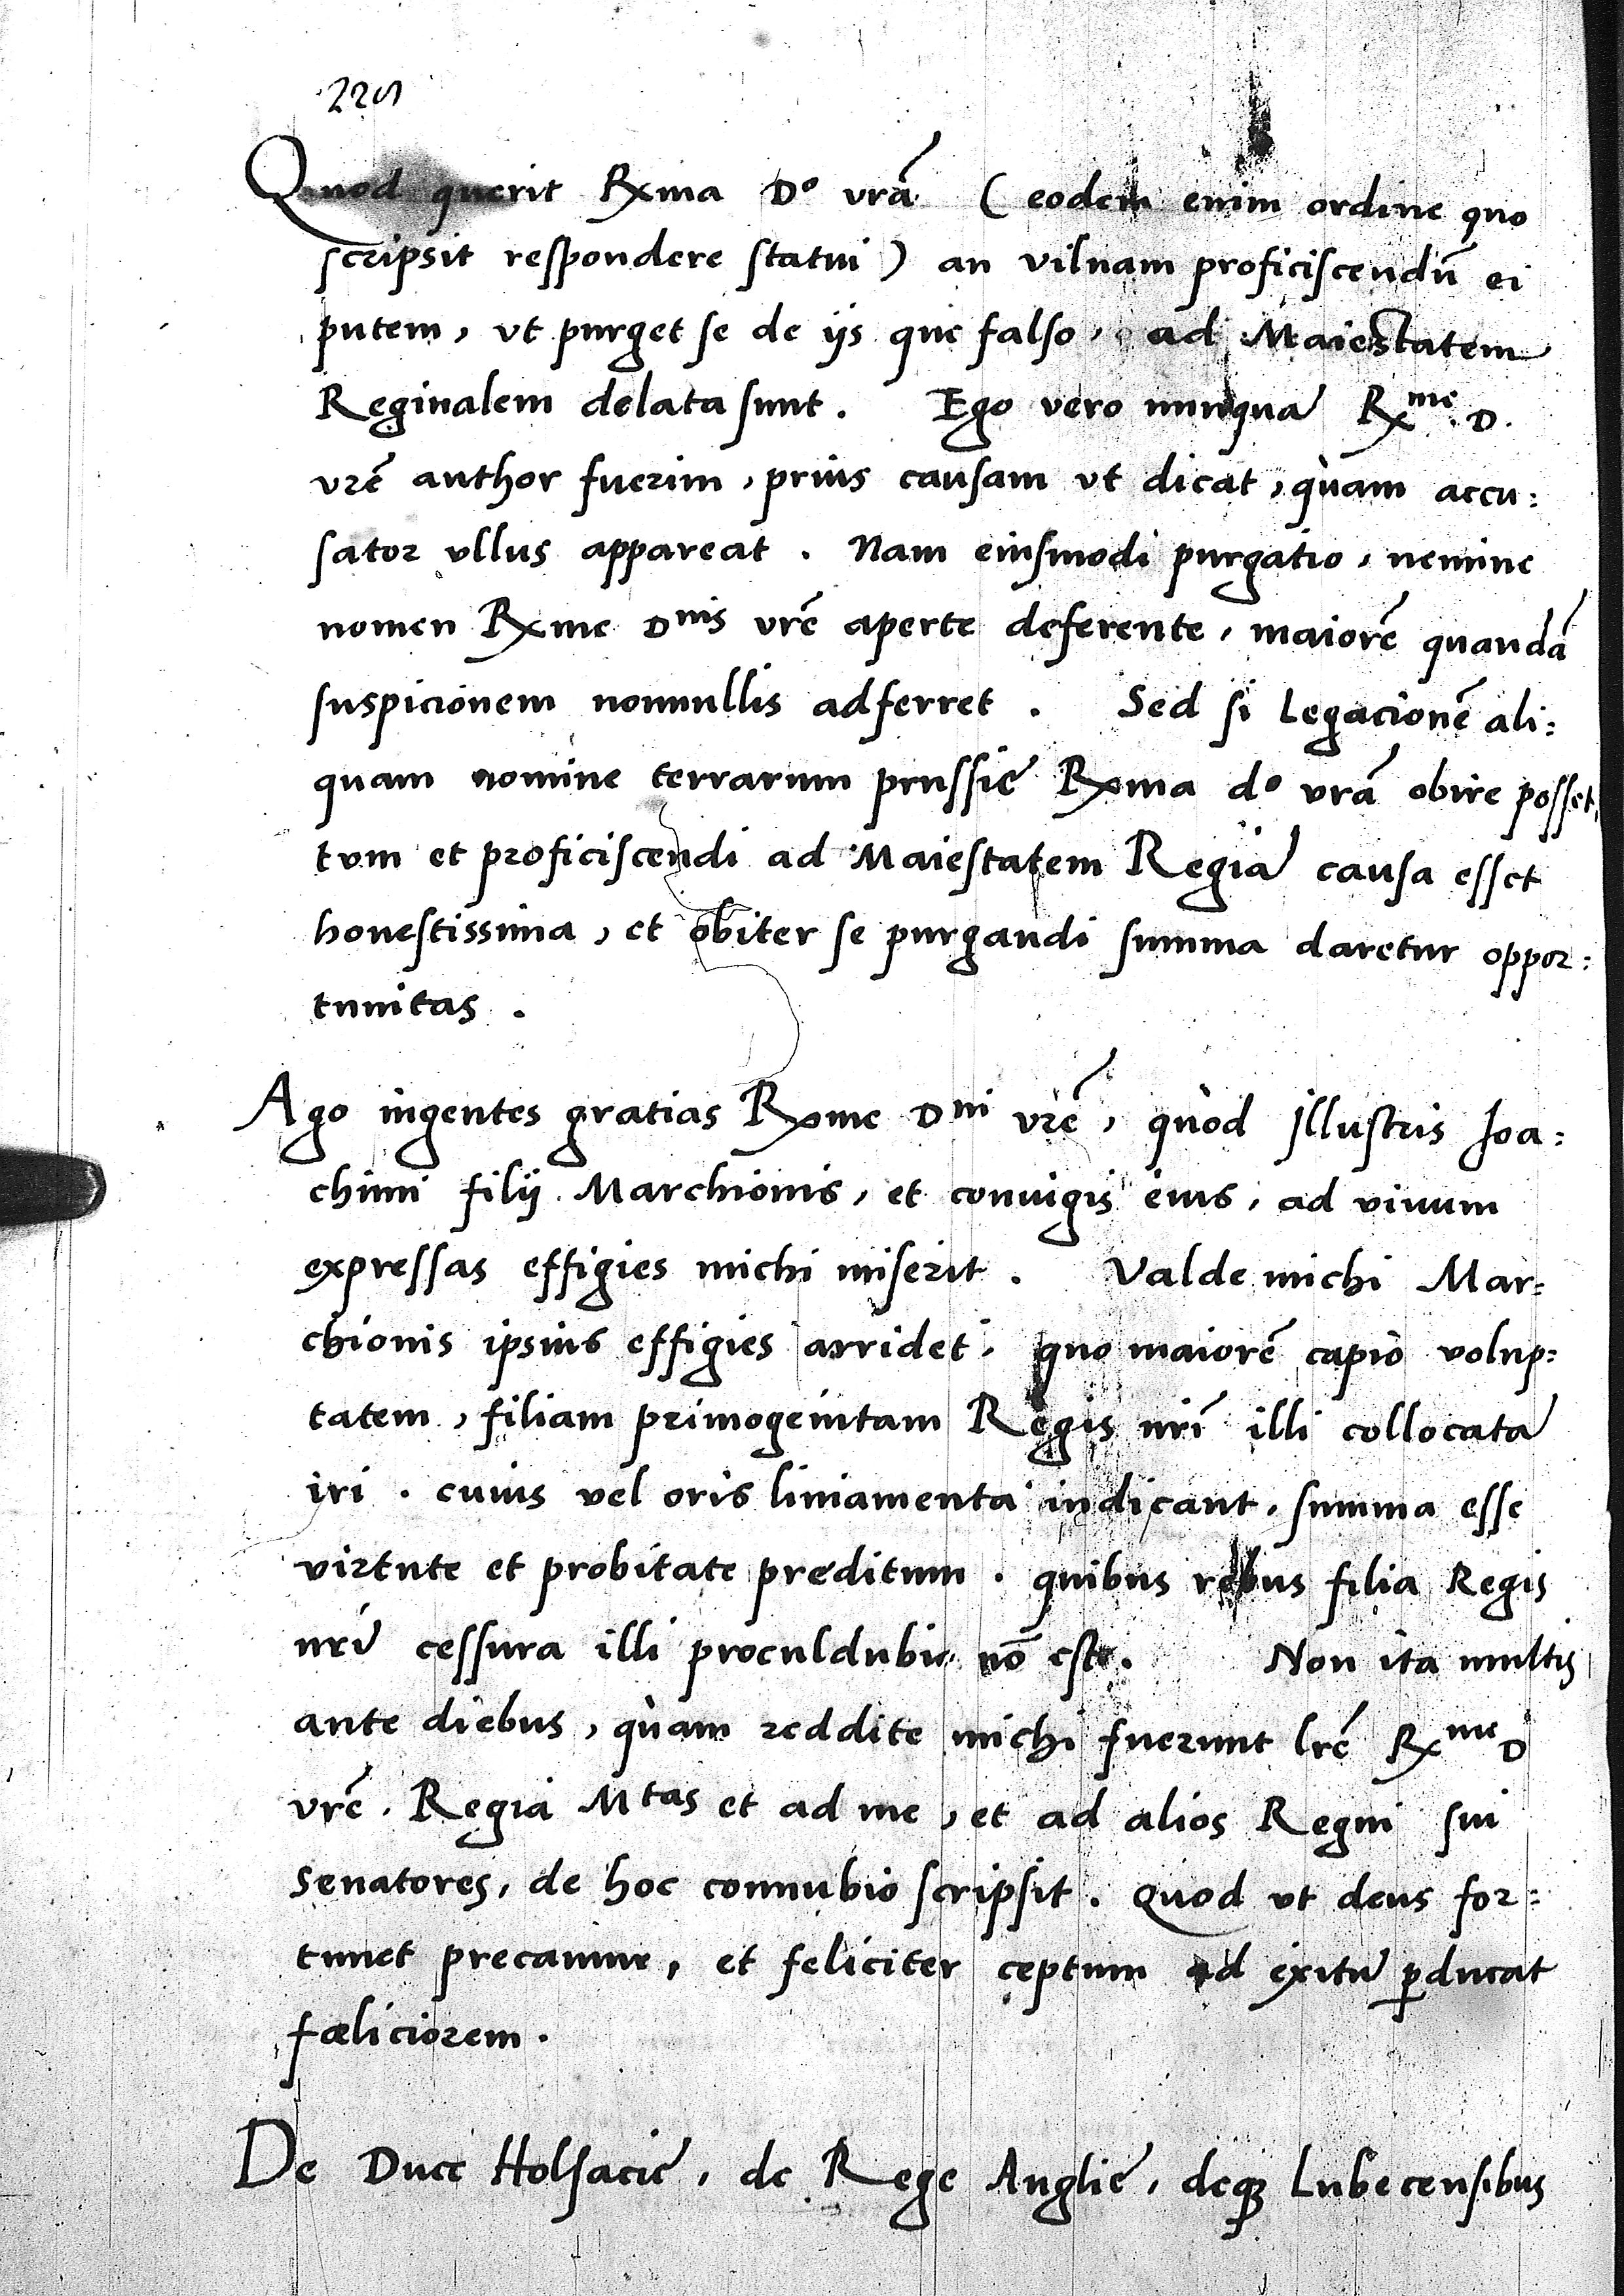 225
Quod querit Rxma Do vrã (eodem enim ordine quo
scripsit respondere statui) an vilnam proficiscendũ ei
putem, vt purget se de ijs que falso, ad Maiestatem
Reginalem delata sunt. Ego vero nunquã Rxme. D.
vrẽ author fuerim, prius causam vt dicat, quàm accu:
sator vllus appareat. Nam eiusmodi purgatio, nemine
nomen Rxme Dnis vrẽ aperte deferente, maiorẽ quandã
suspicionem nonnullis adferret. Sed si Legacionẽ ali:
quam nomine terrarum prussie Rxma do vrã obire posset,
tum et proficiscendi ad Maiestatem Regiã causa esset
honestissima, et obiter se purgandi summa daretur oppor:
tunitas.
Ago ingentes gratias Rxme Dni vrẽ, quòd Illustris Ioa:
chimi filij Marchionis, et coniugis eius, ad viuum
expressas effigies michi miserit. Valde michi Mar:
chionis ipsius effigies arridet. quo maiorẽ capio volup:
tatem, filiam primogenitam Regis nrĩ illi collocatã
iri. cuius vel oris liniamenta indicant, summa esse
virtute et probitate preditum. quibus rebus filia Regis
nrĩ cessura illi proculdubio nõ est. Non ita multis
ante diebus, quàm reddite michi fuerunt lrẽ Rxme D
vrẽ. Regia Mtas et ad me, et ad alios Regni sui
Senatores, de hoc connubio scripsit. Quod vt deus for:
tunet precamur, et feliciter ceptum ad exitũ ꝑducat
fœliciorem.
De Duce Holsacie, de Rege Anglie, deqꝫ Lubecensibus